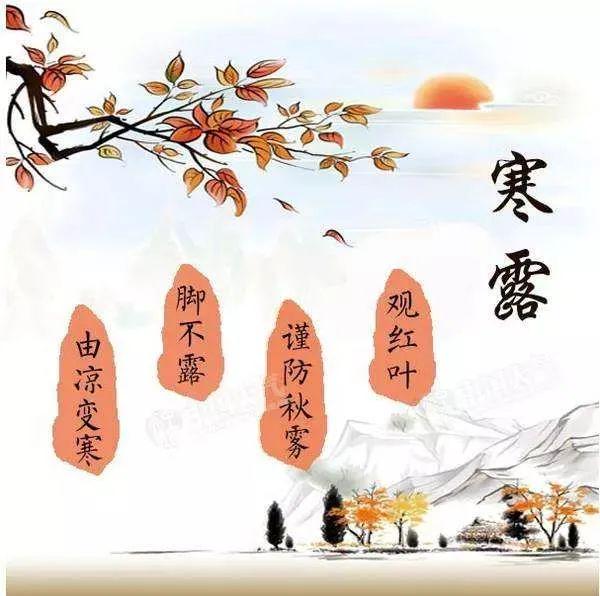 寒露
观红叶
谨防秋雾
脚不露
由凉变寒